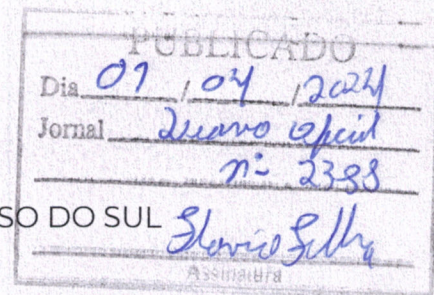 PUBLICADO
Dia 01 / 04 / 2024
Jornal Diário Oficial
nº 2388
SO DO SUL
Assinatura